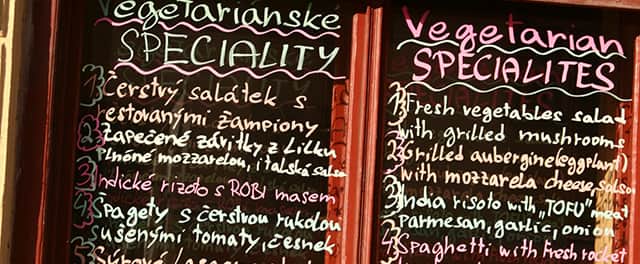 Vegetariánské
SPECIALITY
1 Čerstvý salátek s
restovanými žampiony
2 Zapečené závitky z Lilku
plněné mozzarelou, italská salsa
3 Indické rizoto s ROBI masem
4 Spagety s čerstvou rukolou
sušenými tomaty, česnek
5 Sýrové
Vegetarian
SPECIALITES
1 Fresh vegetables salad
with grilled mushrooms
2 Grilled aubergine (eggplant)
with mozzarela cheese, salso
3 India risoto with „TOFU" meat
parmesan, garlic, onion
4 Spaghetti with Fresh rocket